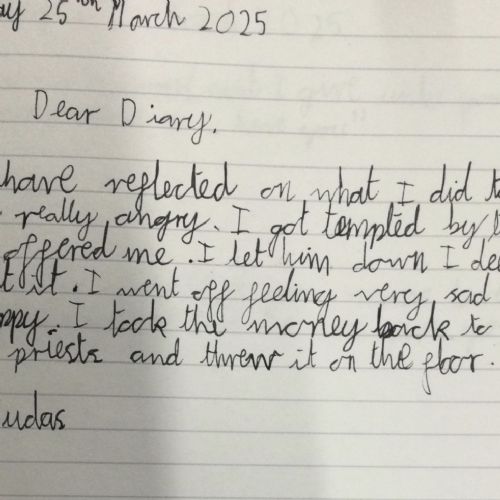 ay 25th March 2025
Dear Diary,
have reflected on what I did t
really angry. I got tempted by
offered me. I let him down I de
t it. I went off feeling very sad
ppy. I took the money back to
priests and threw it on the floor.
udas